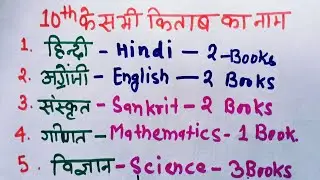 10th के सभी किताब का नाम
1. हिन्दी - Hindi - 2 - Books
2. अंग्रेजी - English - 2 Books
3. संस्कृत - Sankrit - 2 Books
4. गणित - Mathematics - 1 Book.
5. विज्ञान - Science - 3 Books